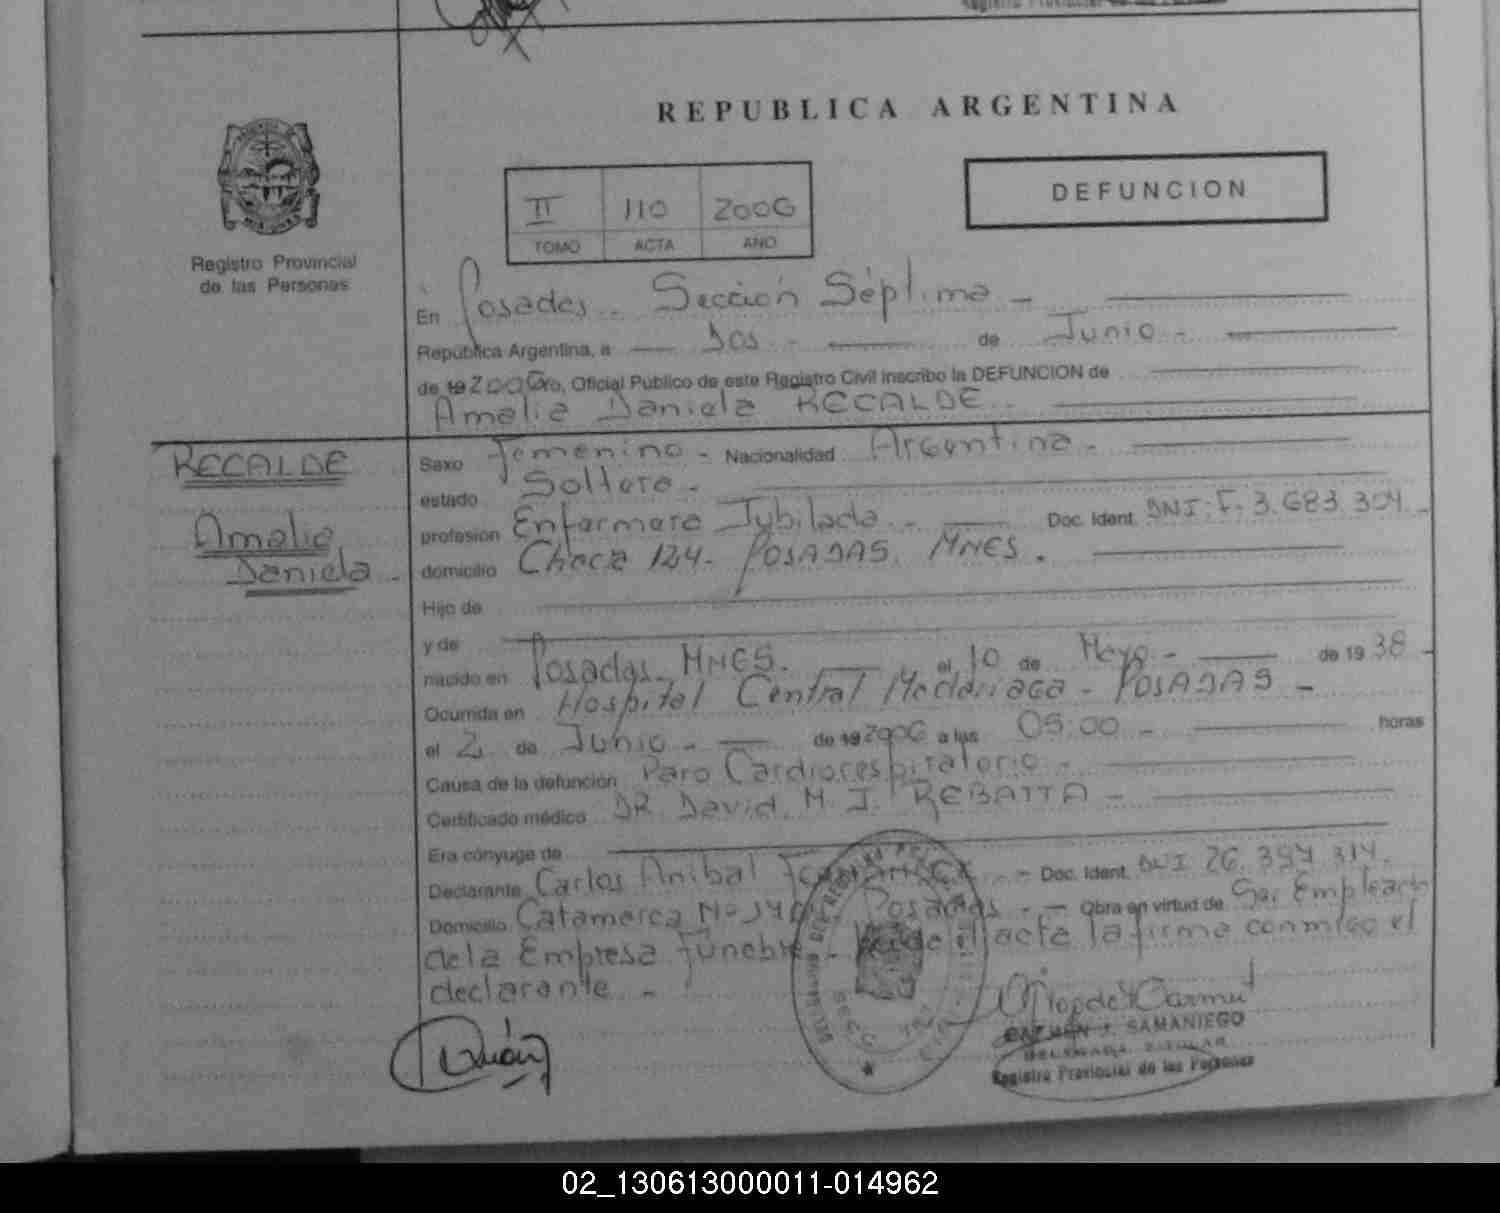 REPUBLICA ARGENTINA
DEFUNCION
II 110 2006
TOMO ACTA AÑO
Registro Provincial
de las Personas
En Posadas - Sección Séptima -
República Argentina, a Dos - de Junio -
de 19 2006 Yo, Oficial Público de este Registro Civil inscribo la DEFUNCION de
Amalia Daniela RECALDE
RECALDE
Amalia
Daniela -
Sexo Femenino - Nacionalidad Argentina -
estado Soltera -
profesión Enfermera Jubilada - Doc. Ident. DNI: F. 3.683.304 -
domicilio Chaca 124 - POSADAS, MNES.
Hijo de
y de
nacido en Posadas, MNES. el 10 de Mayo - de 19 38 -
Ocurrida en Hospital Central Madariaga - POSADAS -
el 2 de Junio - de 19 2006 a las 05:00 - horas
Causa de la defunción Paro Cardiorespiratorio -
Certificado médico DR. David M. J. REBATTA -
Era cónyuge de
Declarante Carlos Anibal - Doc. Ident. DNI 26.394.314.
Domicilio Catamarca Nº Posadas - Obra en virtud de Ser Empleado
de la Empresa Fúnebre - el acta la firma conmigo el
declarante -
CARMEN J. SAMANIEGO
DELEGADA TITULAR
Registro Provincial de las Personas
02_130613000011-014962